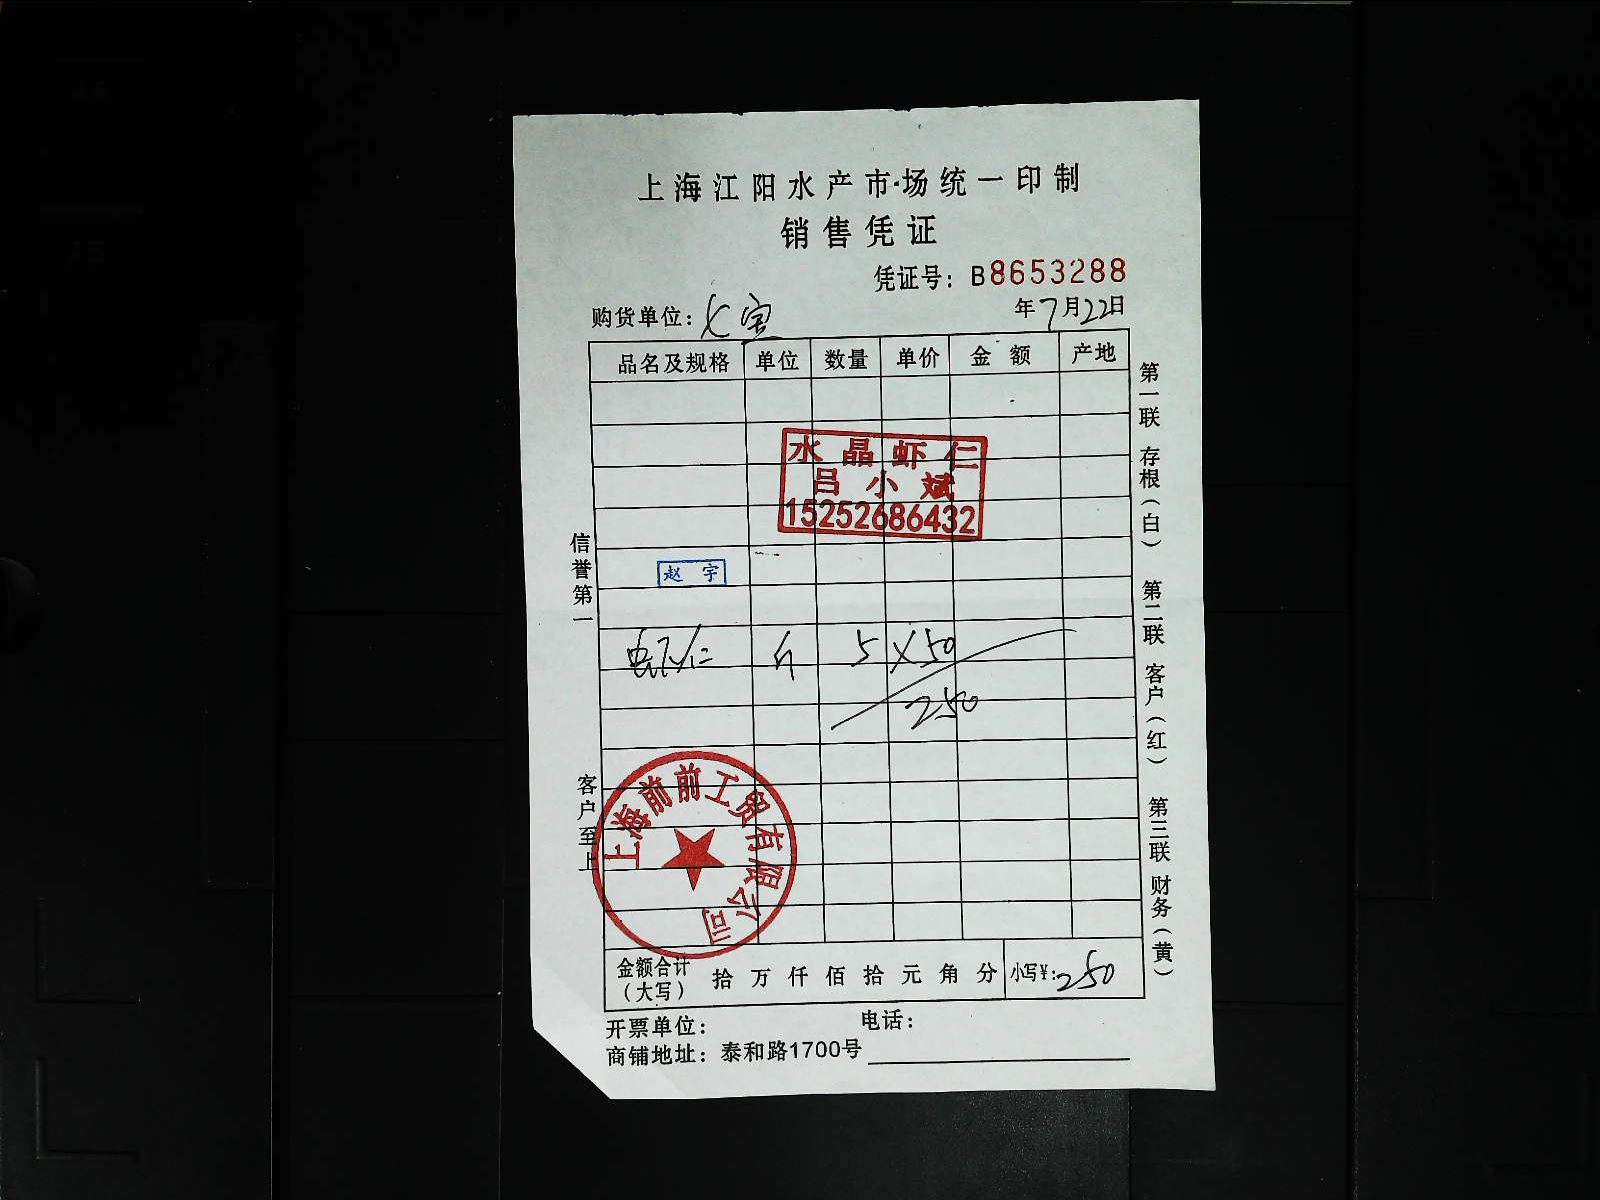 上海江阳水产市场统一印制
销售凭证
凭证号：B8653288
购货单位：七宝 年7月22日
品名及规格 单位 数量 单价 金额 产地
水晶虾仁
吕小斌
15252686432
赵宇
虾仁 斤 5 X 50
250
上海前前工贸有限公司
金额合计（大写） 拾万仟佰拾元角分 小写¥：250
开票单位： 电话：
商铺地址：泰和路1700号
信誉第一 客户至上
第一联 存根（白） 第二联 客户（红） 第三联 财务（黄）